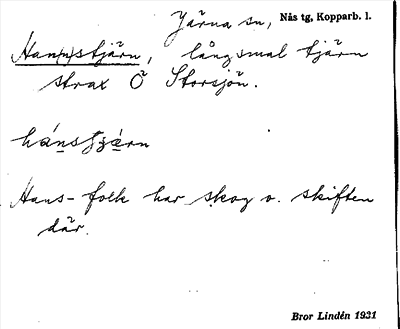 Järna sn, Nås tg, Kopparb. l.
Han(n)stjärn, långsmal tjärn
strax Ö Storsjön.
hánstjä̀rn
Hans-folk har skog o. skiften
där.
Bror Lindén 1931